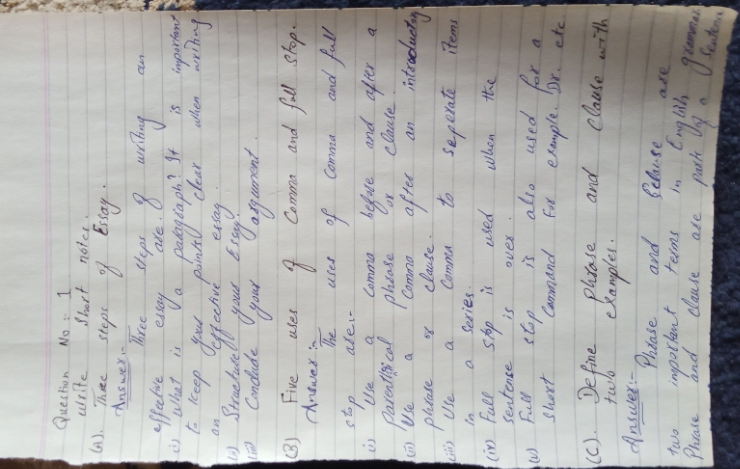 Question No :- 1
Write Short notes.
(A). Three steps of Essay.
Answer:-
Three steps of writing an
effective essay are.
i) What is a paragraph? It is important
to keep your points clear when writing
an effective essay.
(ii) Structure your Essay.
(iii) Conclude your argument.
(B) Five uses of Comma and full Stop.
Answer:-
The uses of comma and full
stop are:-
i) Use a comma before and after a
parentical phrase or clause
(ii) Use a comma after an introductory
phrase or clause.
(iii) Use a comma to seperate items
in a series.
(iv) Full stop is used when the
sentence is over.
(v) Full stop is also used for a
short command For example. Dr. etc
(C). Define phrase and clause with
two examples.
Answer:-
Phrase and clause are
two important terms in English grammar
Phrase and clause are parts of a sentence